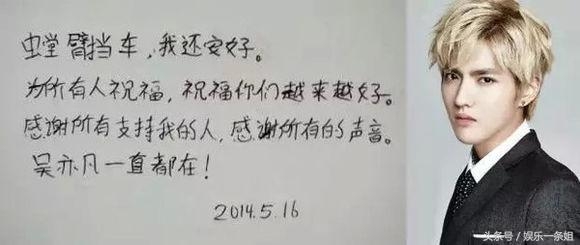 螳臂挡车，我还安好。
为所有人祝福，祝福你们越来越好。
感谢所有支持我的人，感谢所有的声音。
吴亦凡一直都在！
2014.5.16
头条号／娱乐一条姐